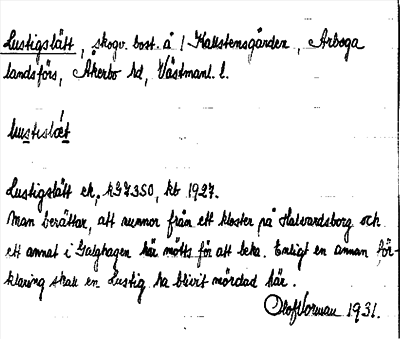 Lustigslätt, skogv. bost. å / Kalkstensgården, Arboga
landsförs, Åkerbo hd, Västmanl. l.
lustıslæ̀t
Lustigslätt ek, kb 1927.
Man berättar, att nunnor från ett kloster på Halvardsborg och
ett annat i Galghagen här mötts för att leka. Enligt en annan för-
klaring skall en Lustig ha blivit mördad här.
Olof Norman 1931.